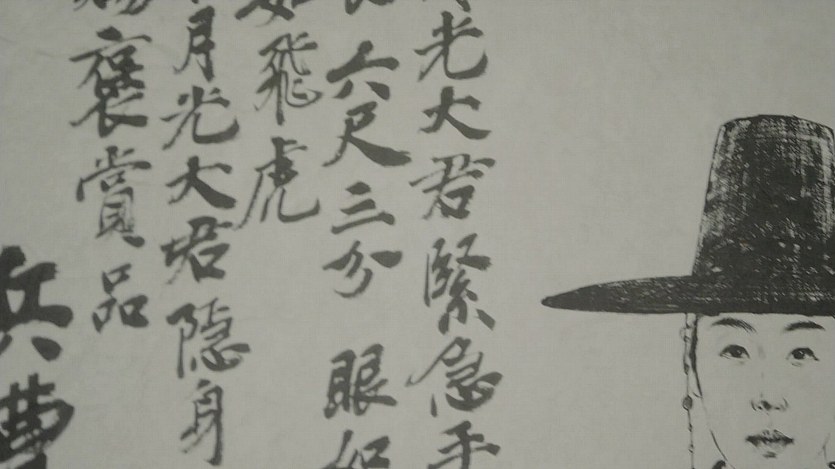 光大君緊急手
六尺三分 眼如
如飛虎
月光大君隐身
褒賞品
兵曹